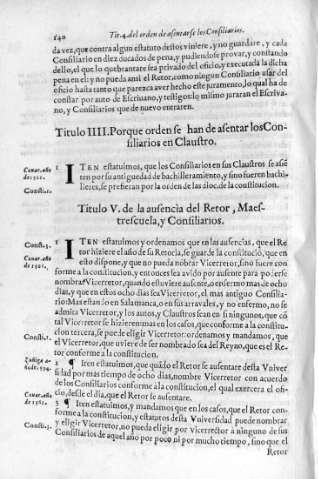 140 Tit. 4. del orden de asentarse los Consiliarios.
da vez, que contra algun estatuto destos viniere, y no guardare, y cada
Consiliario en diez ducados de pena, y pudiendose provar, y constando
dello, el que lo quebrantare sea privado del oficio, y executada la dicha
pena en el: y no pueda ansi el Retor, como ningun Consiliario usar del
oficio hasta tanto que parezca aver hecho este juramento, lo qual ha de
constar por auto de Escrivano, y testigos: lo mismo juraran el Escriva-
no, y Consiliarios que de nuevo entraren.
Titulo IIII. Porque orden se han de asentar los Con-
siliarios en Claustro.
1 ITEN estatuimos, que los Consiliarios en sus Claustros se asiē
ten por su antiguedad de bachilleramiento, y sino fueren bachi-
lleres, se prefieran por la orden de las dioc. de la constitucion.
Titulo V. de la ausencia del Retor, Maes-
trescuela, y Consiliarios.
1 ITEN estatuimos y ordenamos que en las ausencias, que el Re
tor hiziere el año de su Retoria, se guarde la constitució, que en
esto dispone, y que no pueda nombrar Vicerretor, sino fuere con
forme a la constitucion, y entonces sea avido por ausente para poderse
nombrar Vicerretor, quando estuviere ausente, o enfermo mas de ocho
dias, y que en estos ocho dias sea Vicerretor, el mas antiguo Consilia-
rio: Mas estando en Salamanca, o en sus arravales, y no enfermo, no se
admita Vicerretor, y los autos, y Claustros sean en si ningunos, que có
tal Vicerretor se hizieren: mas en los casos, que conforme a la constitu-
cion tercera, se puede eligir Vicerretor: ordenamos y mandamos, que
el Vicerretor, que oviere de ser nombrado sea del Reyno, que es el Re-
tor conforme a la constitucion.
2 ¶ Iten estatuimos, que quádo el Retor se ausentare desta Univer
sidad por mas tiempo de ocho dias, nombre Vicerretor con acuerdo
de los Consiliarios conforme a la constitucion, el qual exercera el ofi-
cio, desde el dia, que el Retor se ausentare.
3 ¶ Iten estatuimos, y mandamos que en los casos, que el Retor con-
forme a la constitucion, y estatutos desta Universidad puede nombrar
y eligir Vicerretor, no pueda eligir por vicerretor a ninguno de sus
Consiliarios de aquel año por poco ni por mucho tiempo, sino que el
Retor